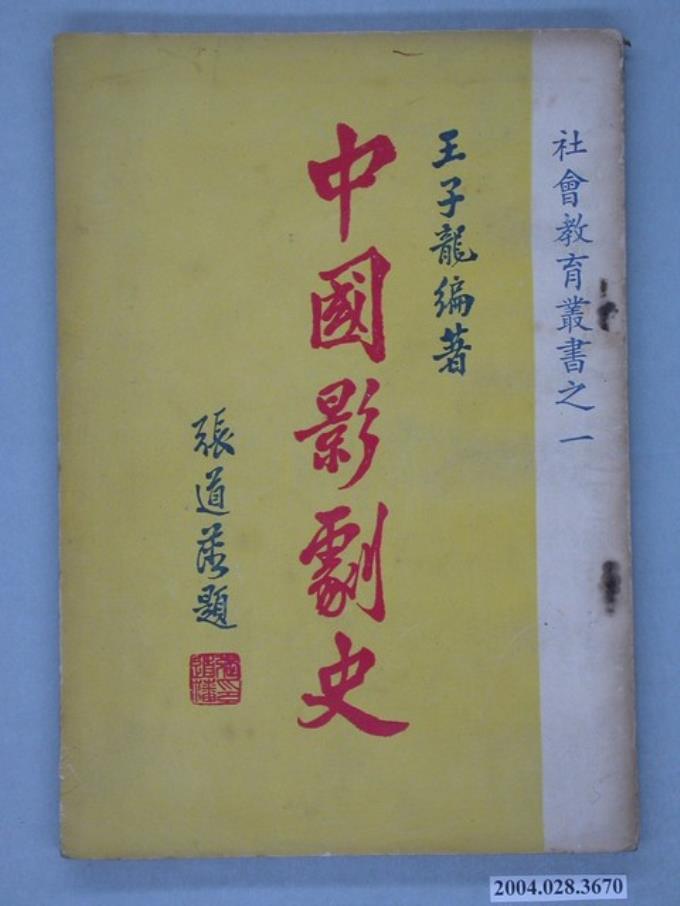 社會教育叢書之一
王子龍編著
中國影劇史
張道藩題
2004.028.3670